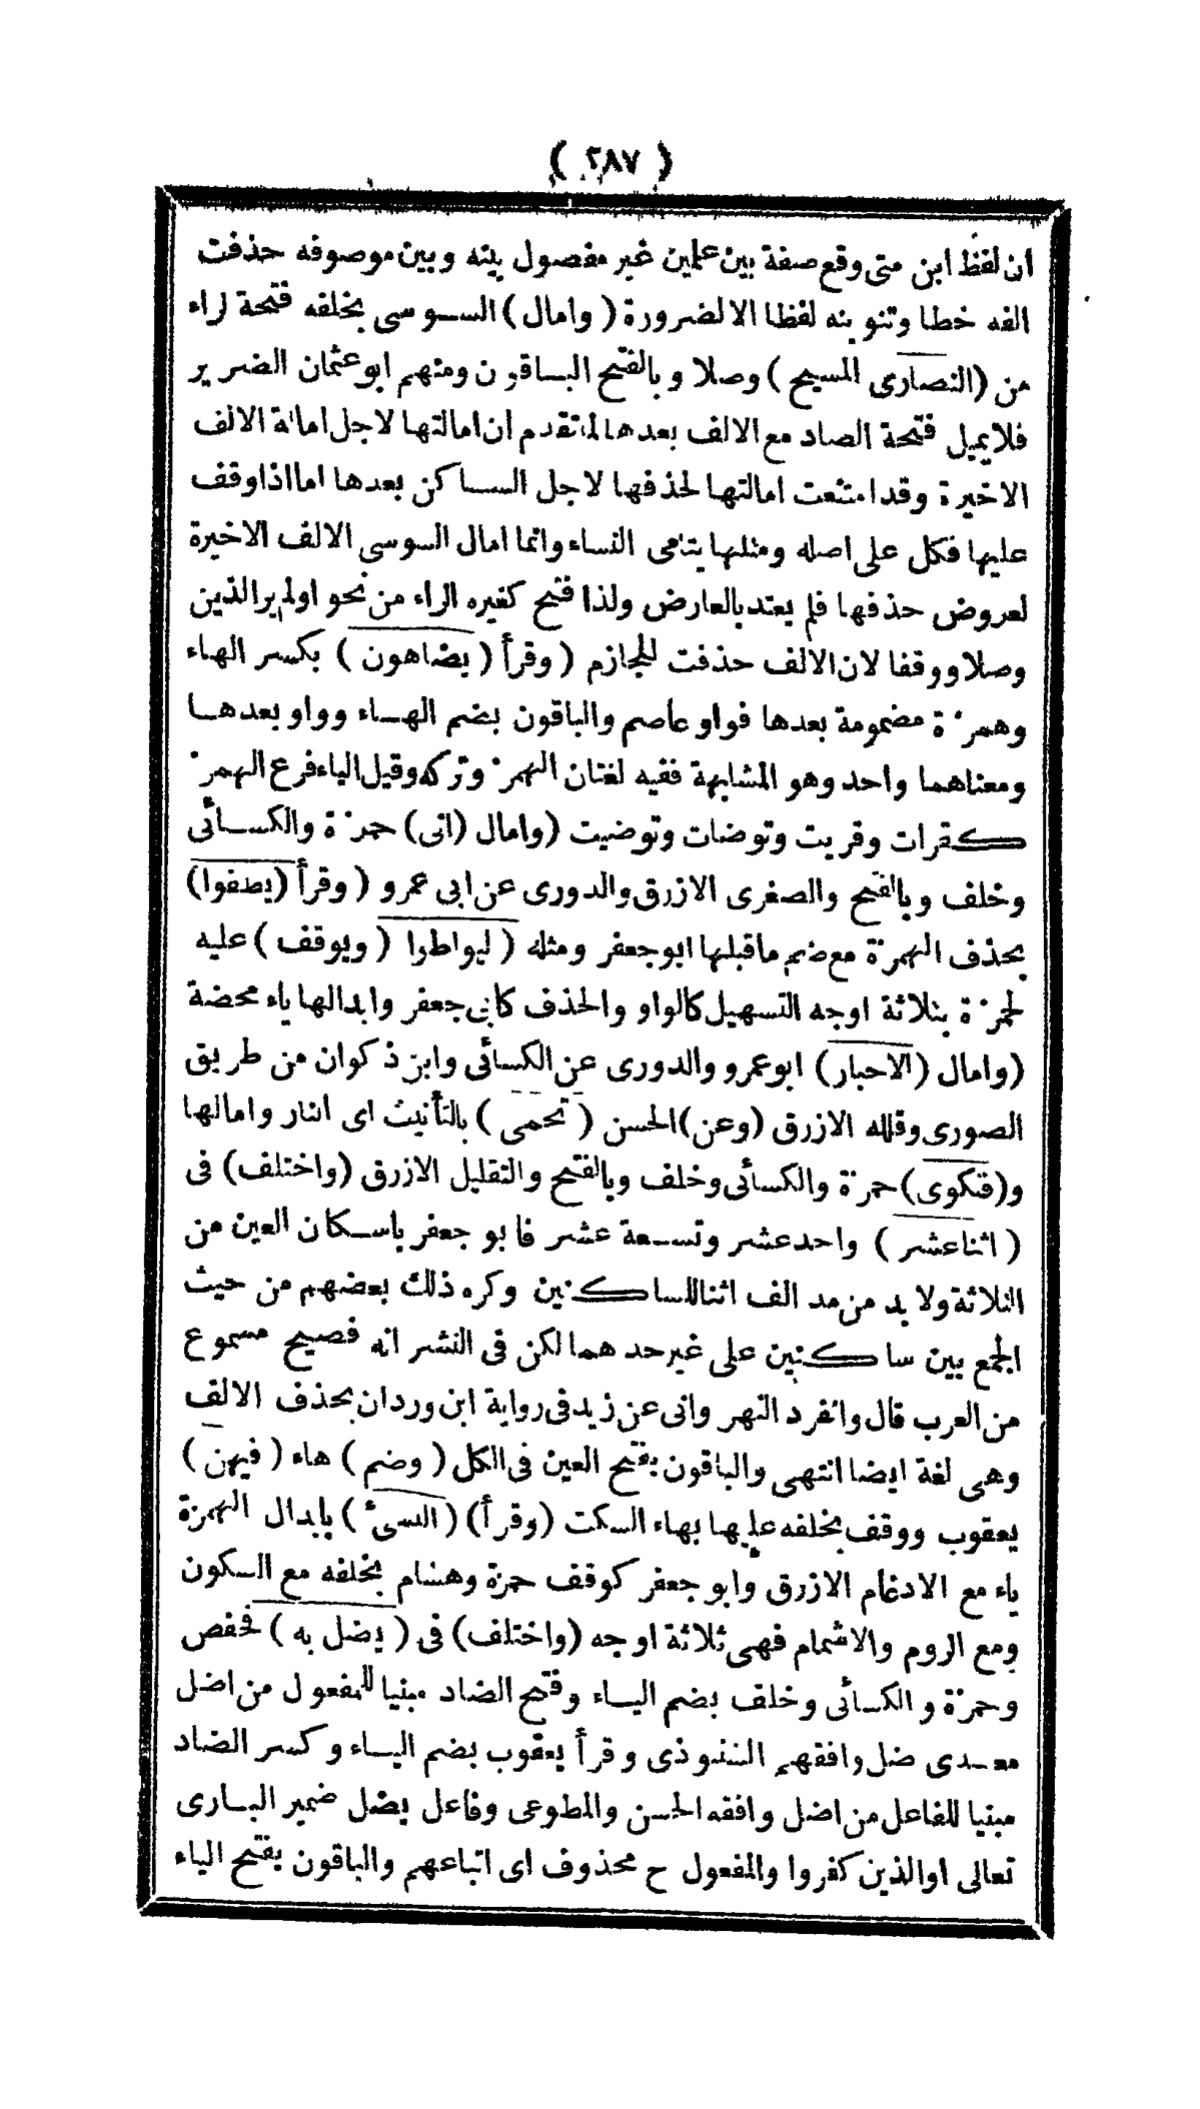 ( ٢٨٧ )
ان لفظ ابن متى وقع صفة بين علمين غير مفصول بينه وبين موصوفه حذفت
الفه خطا وتنوينه لفظا الا لضرورة (وامال) السوسى بخلفه فتحة لراء
من (النصارى المسيح) وصلا وبالفتح الباقون ومنهم ابو عثمان الضرير
فلا يميل فتحة الصاد مع الالف بعدها لما تقدم ان امالتها لاجل امالة الالف
الاخيرة وقد امتنعت امالتها لحذفها لاجل الساكن بعدها اما اذا وقف
عليها فكل على اصله ومثلها يتامى النساء وانما امال السوسى الالف الاخيرة
لعروض حذفها فلم يعتد بالعارض ولذا فتح كغيره الراء من نحو اولم ير الذين
وصلا ووقفا لان الالف حذفت للجازم (وقرأ (يضاهون) بكسر الهاء
وهمزة مضمومة بعدها فواو عاصم والباقون بضم الهاء وواو بعدها
ومعناهما واحد وهو المشابهة ففيه لغتان الهمز وتركه وقيل الياء فرع الهمز
كقرات وقريت وتوضات وتوضيت (وامال (انى) حمزة والكسائى
وخلف وبالفتح والصغرى الازرق والدورى عن ابى عمرو (وقرأ (يطفوا)
بحذف الهمزة مع ضم ماقبلها ابو جعفر ومثله (ليواطوا (ويوقف) عليه
لحمزة بثلاثة اوجه التسهيل كالواو والحذف كابى جعفر وابدالها ياء محضة
(وامال (الاحبار) ابو عمرو والدورى عن الكسائى وابن ذكوان من طريق
الصورى وقلله الازرق (وعن) الحسن (تحمى) بالتأنيث اى النار وامالها
و(فتكوى) حمزة والكسائى وخلف وبالفتح والتقليل الازرق (واختلف) فى
(اثنا عشر) واحد عشر وتسعة عشر فابو جعفر باسكان العين من
الثلاثة ولا بد من مد الف اثنا للساكنين وكره ذلك بعضهم من حيث
الجمع بين ساكنين على غير حدهما لكن فى النشر انه فصيح مسموع
من العرب قال وانفرد النهروانى عن زيد فى رواية ابن وردان بحذف الالف
وهى لغة ايضا انتهى والباقون بفتح العين فى الكل (وضم) هاء (فيهن)
يعقوب ووقف بخلفه عليها بهاء السكت (وقرأ) (النسىء) بابدال الهمزة
ياء مع الادغام الازرق وابو جعفر كوقف حمزة وهشام بخلفه مع السكون
ومع الروم والاشمام فهى ثلاثة اوجه (واختلف) فى (يضل به) فحفص
وحمزة والكسائى وخلف بضم الياء وفتح الضاد مبنيا للمفعول من اضل
معدى ضل وافقهم الشنبوذى وقرأ يعقوب بضم الياء وكسر الضاد
مبنيا للفاعل من اضل وافقه الحسن والمطوعى وفاعل يضل ضمير البارى
تعالى اوالذين كفروا والمفعول ح محذوف اى اتباعهم والباقون بفتح الياء